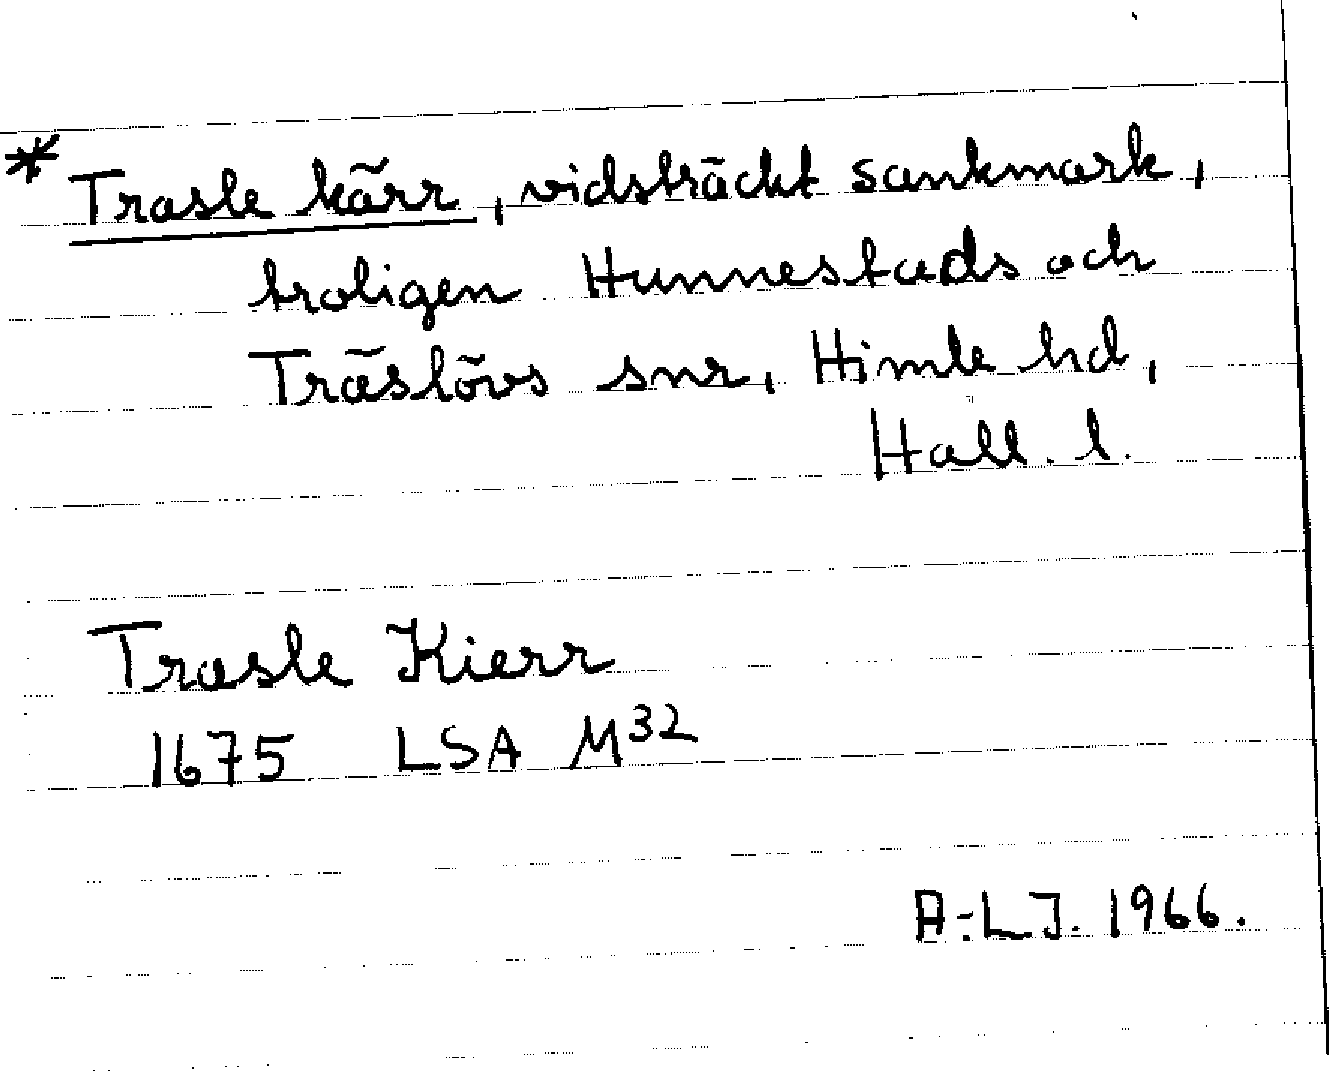 * Trasle kärr, vidsträckt sankmark,
troligen Hunnestads och
Träslövs snr, Himle hd,
Hall. l.
Trasle Kierr
1675 LSA M32
A-LJ. 1966.